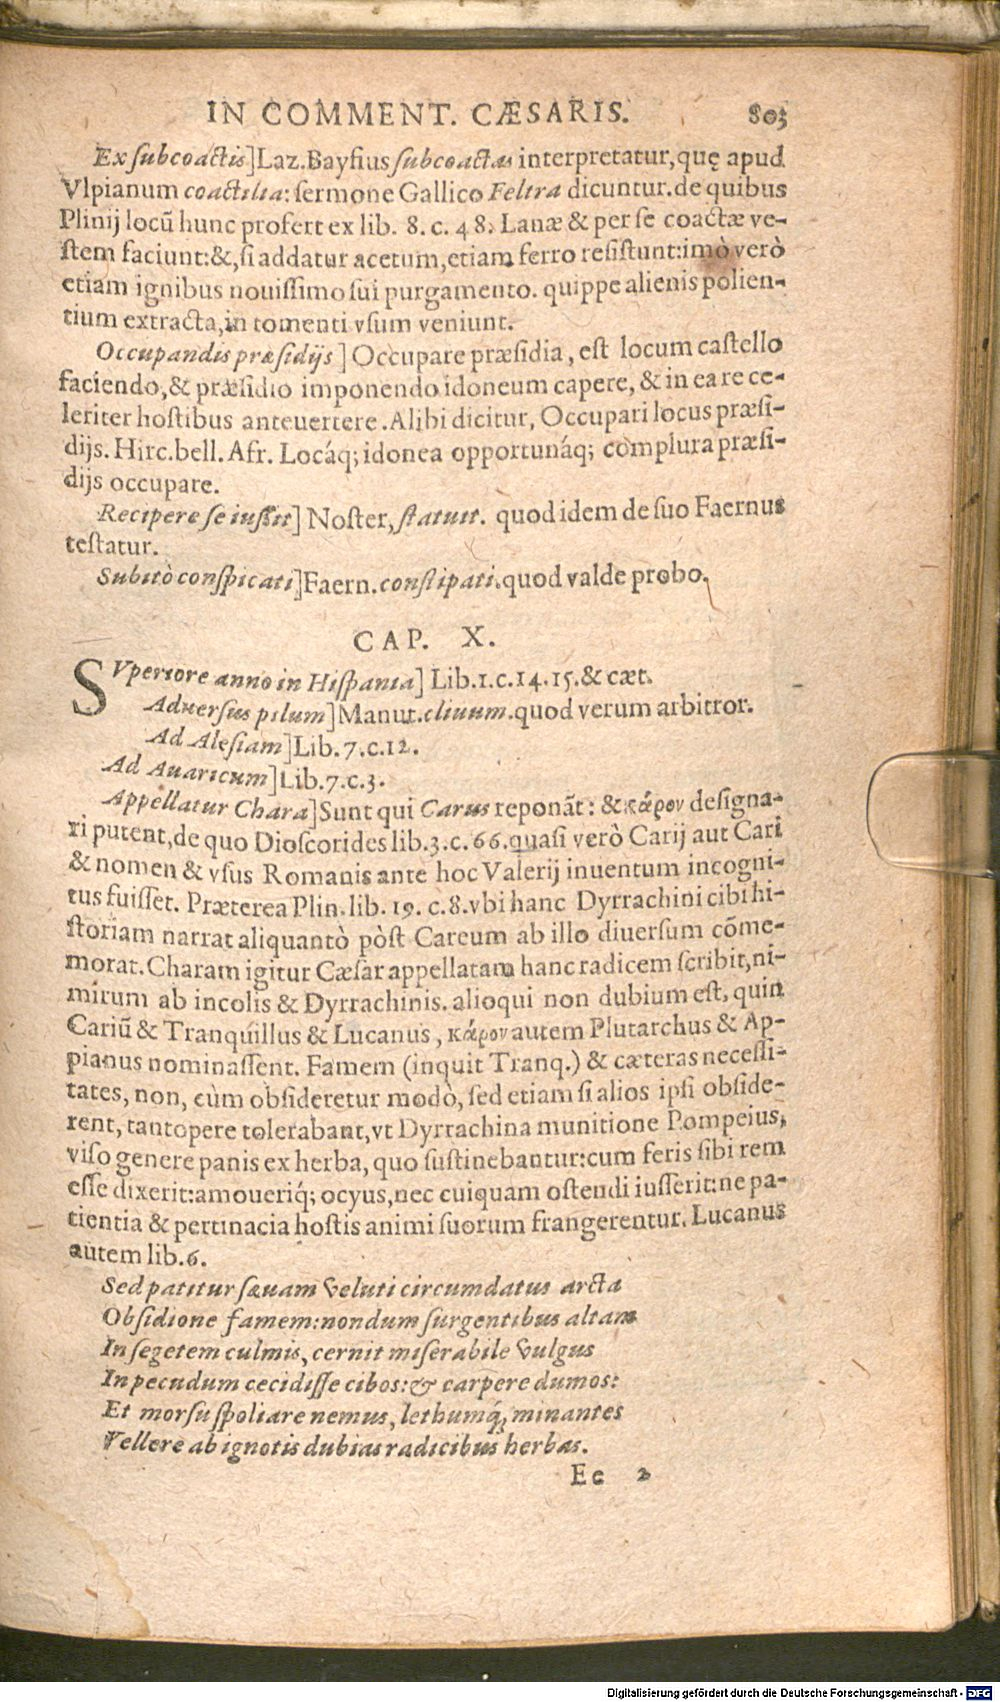 IN COMMENT. CÆSARIS. 803
Ex subcoactis] Laz. Bayfius subcoactas interpretatur, quę apud
Vlpianum coactilia: sermone Gallico Feltra dicuntur. de quibus
Plinij locū hunc profert ex lib. 8. c. 48. Lanæ & per se coactæ ve-
stem faciunt: &, si addatur acetum, etiam ferro resistunt: imò verò
etiam ignibus nouissimo sui purgamento. quippe alienis polien-
tium extracta, in tomenti vsum veniunt.
Occupandis præsidijs] Occupare præsidia, est locum castello
faciendo, & præsidio imponendo idoneum capere, & in ea re ce-
leriter hostibus anteuertere. Alibi dicitur, Occupari locus præsi-
dijs. Hirc. bell. Afr. Locáq; idonea opportunáq; complura præsi-
dijs occupare.
Recipere se iussit] Noster, statuit. quod idem de suo Faernus
testatur.
Subitò conspicati] Faern. constipati. quod valde probo.
CAP. X.
SVperiore anno in Hispania] Lib. 1. c. 14. 15. & cæt.
Aduersus pilum] Manut. cliuum. quod verum arbitror.
Ad Alesiam] Lib. 7. c. 12.
Ad Auaricum] Lib. 7. c. 3.
Appellatur Chara] Sunt qui Carus reponāt: & κάρον designa-
ri putent, de quo Dioscorides lib. 3. c. 66. quasi verò Carij aut Cari
& nomen & vsus Romanis ante hoc Valerij inuentum incogni-
tus fuisset. Præterea Plin. lib. 19. c. 8. vbi hanc Dyrrachini cibi hi-
storiam narrat aliquantò pòst Careum ab illo diuersum cōme-
morat. Charam igitur Cæsar appellatam hanc radicem scribit, ni-
mirum ab incolis & Dyrrachinis. alioqui non dubium est, quin
Cariū & Tranquillus & Lucanus, κάρον autem Plutarchus & Ap-
pianus nominassent. Famem (inquit Tranq.) & cæteras necessi-
tates, non, cùm obsideretur modò, sed etiam si alios ipsi obside-
rent, tantopere tolerabant, vt Dyrrachina munitione Pompeius,
viso genere panis ex herba, quo sustinebantur: cum feris sibi rem
esse dixerit: amoueriq́; ocyus, nec cuiquam ostendi iusserit: ne pa-
tientia & pertinacia hostis animi suorum frangerentur. Lucanus
autem lib. 6.
Sed patitur sæuam veluti circumdatus arcta
Obsidione famem: nondum surgentibus altam
In segetem culmis, cernit miserabile vulgus
In pecudum cecidisse cibos: & carpere dumos:
Et morsu spoliare nemus, lethumq́; minantes
Vellere ab ignotis dubias radicibus herbas.
Ee 2
Digitalisierung gefördert durch die Deutsche Forschungsgemeinschaft - DFG